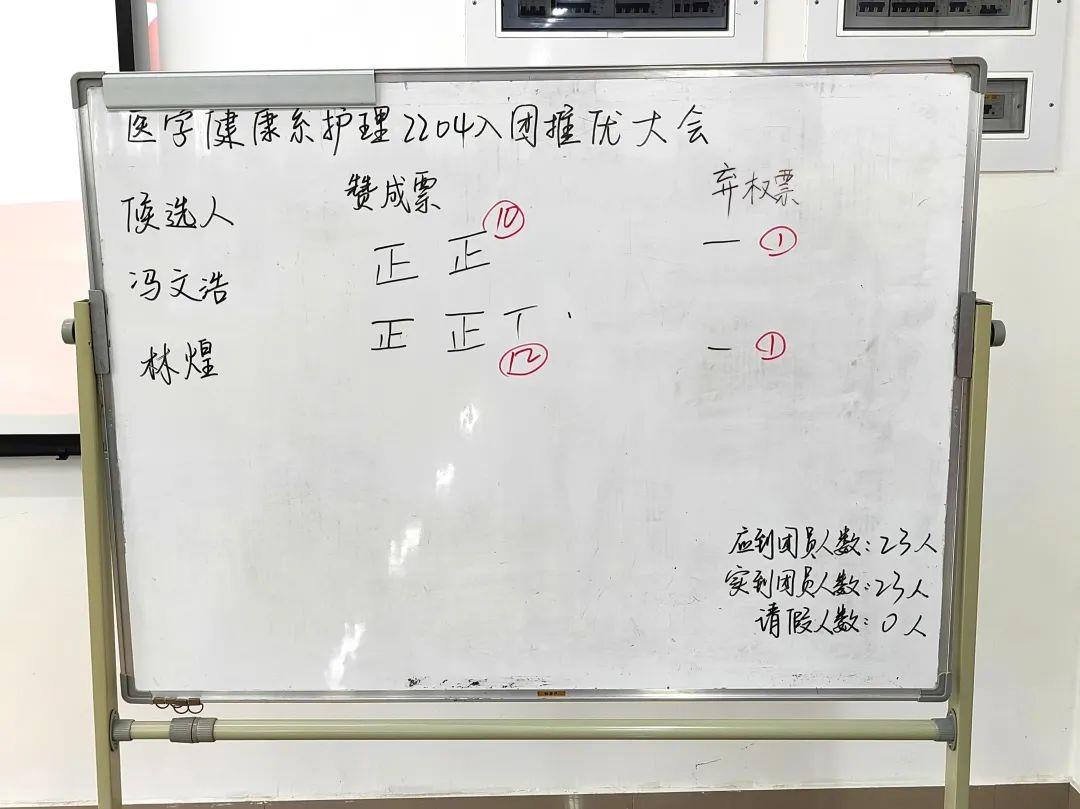 医学健康系护理2204入团推优大会
候选人 赞成票 弃权票
冯文浩 正 正 ⑩ 一 ①
林煌 正 正 丅 ⑫ 一 ①
应到团员人数：23人
实到团员人数：23人
请假人数：0人